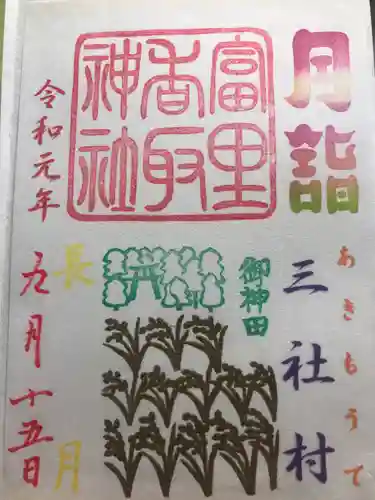 月詣
あきもうで
三社村
富里
香取
神社
御神田
長月
令和元年
九月十五日